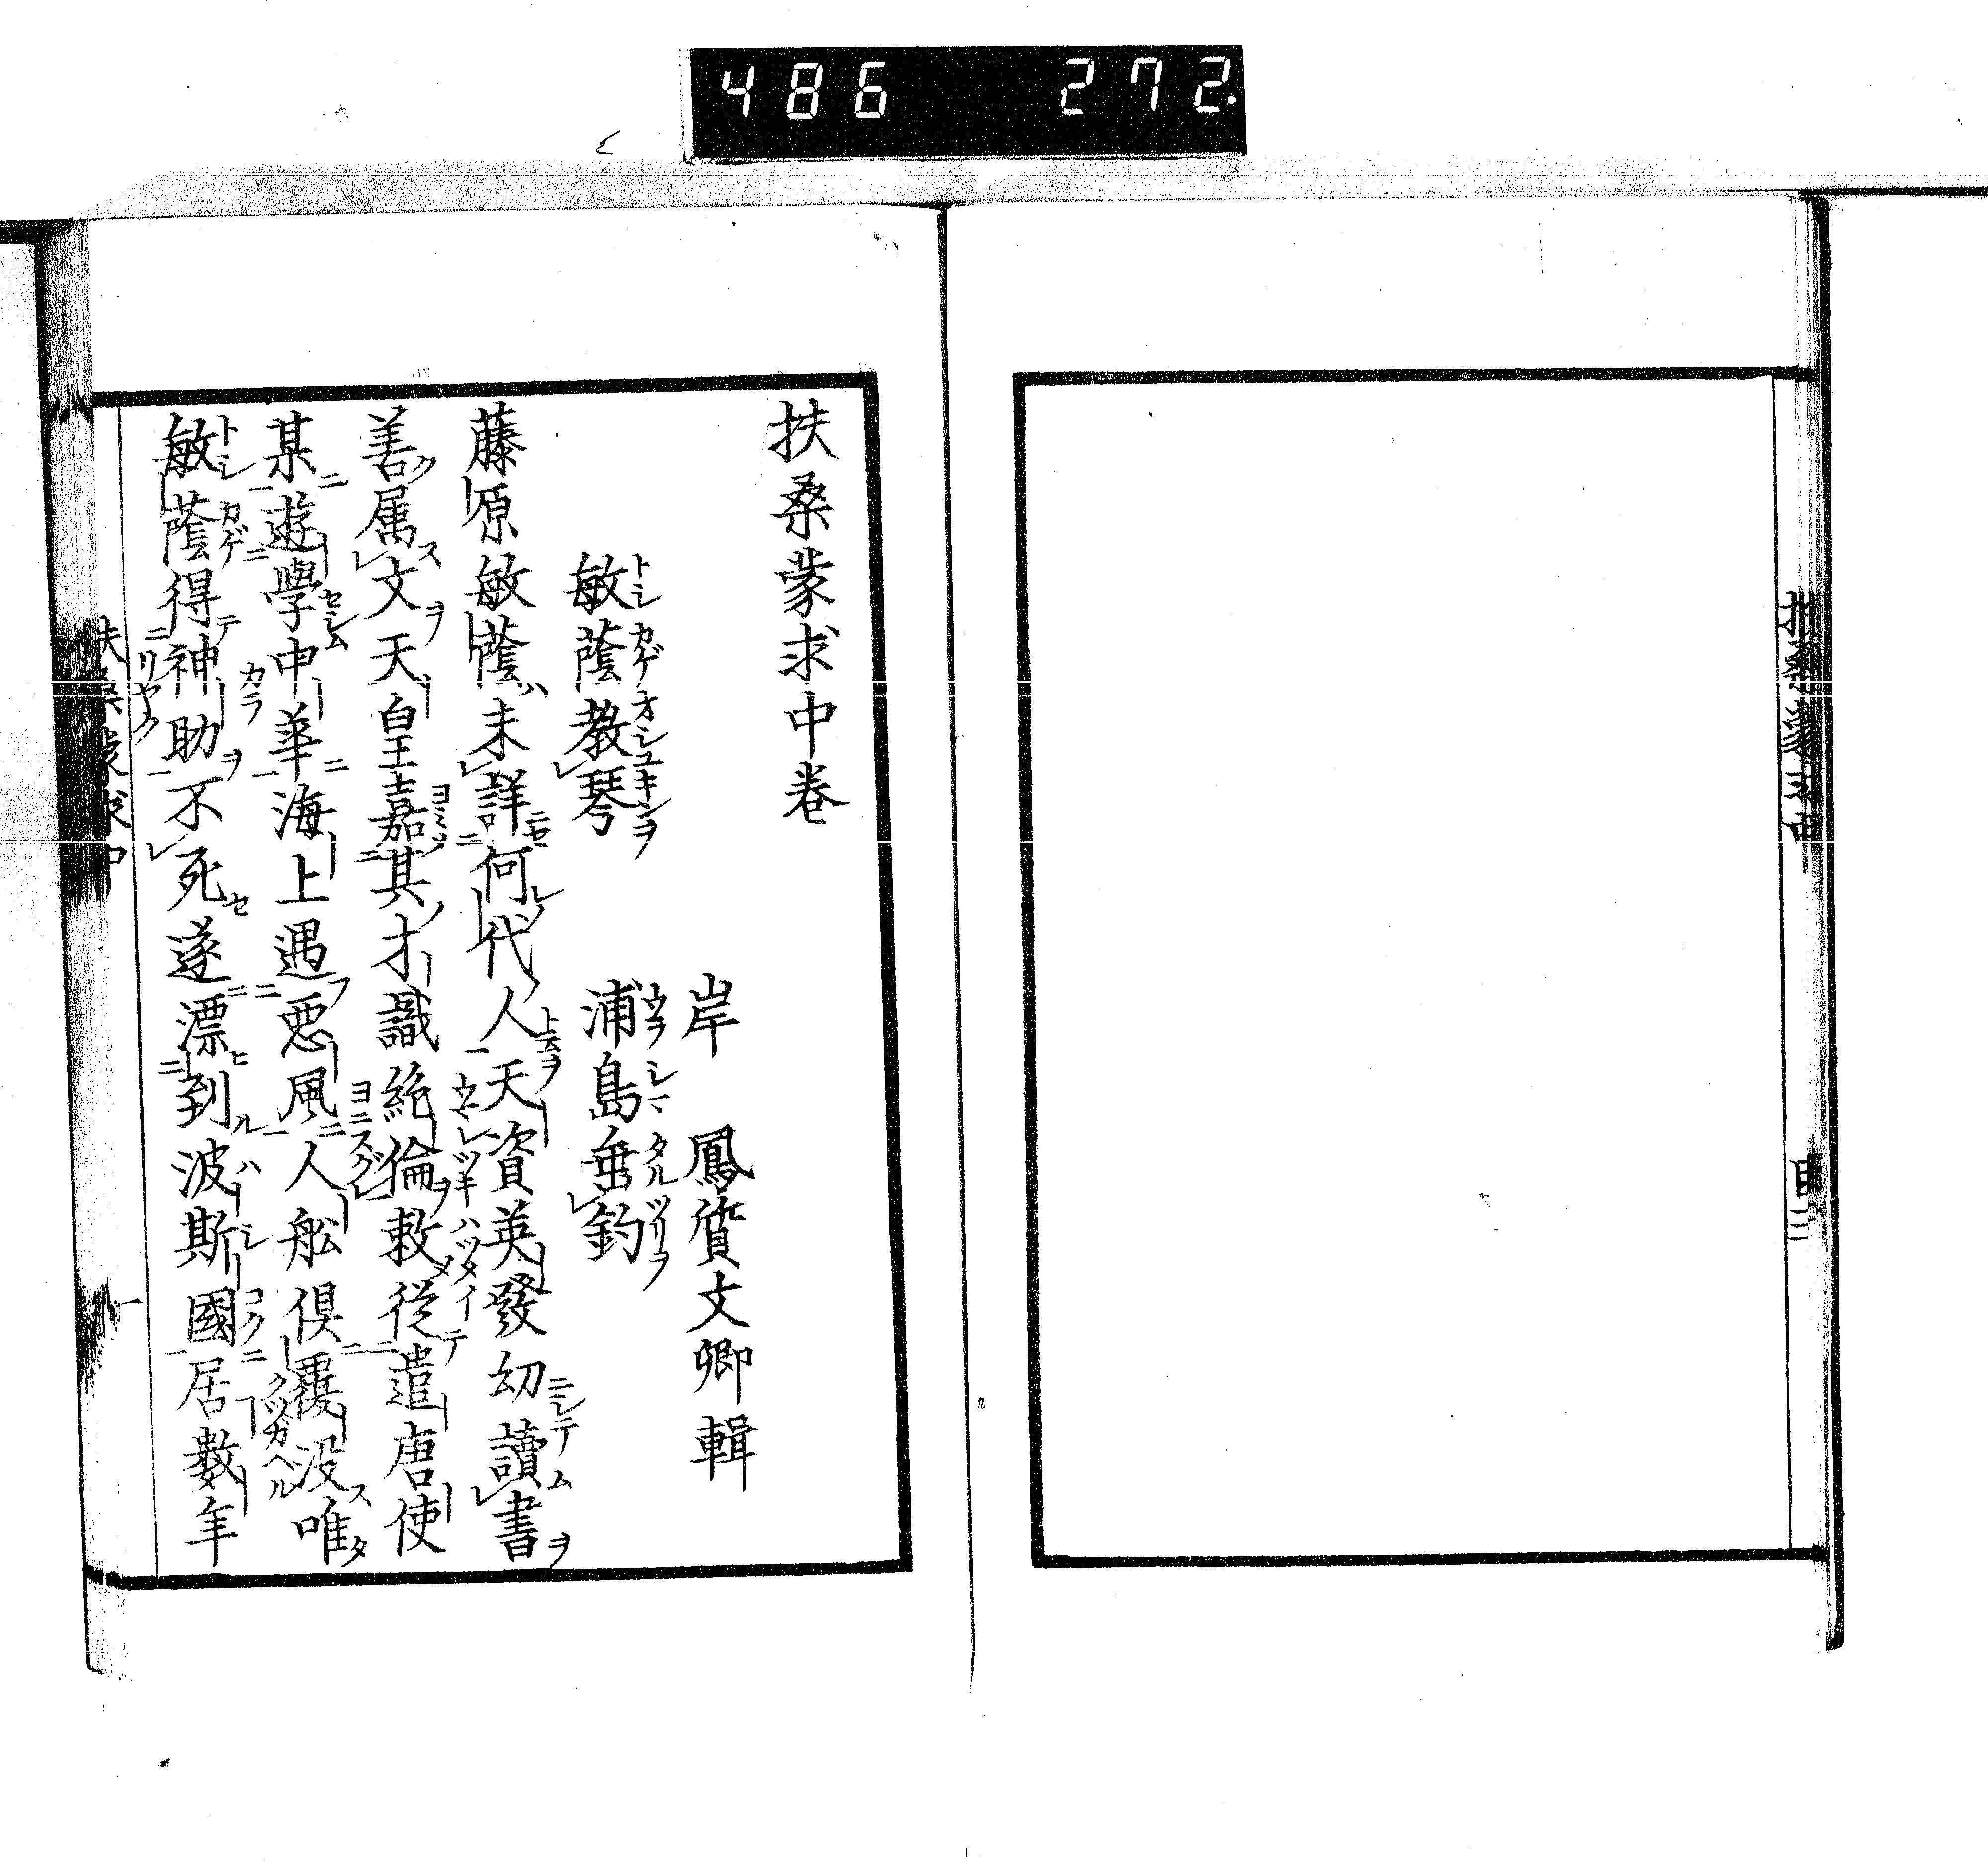 486 272
扶桑蒙求中
目
扶桑蒙求中卷
岸 鳳質文卿輯
敏蔭教琴 浦島垂釣
藤原敏蔭未詳何代人天資英發幼讀書
善属文天皇嘉其才識絶倫敕從遣唐使
某遊學中華海上遇惡風人舩倶覆没唯
敏蔭得神助不死遂漂到波斯國居數年
扶桑蒙求中
一